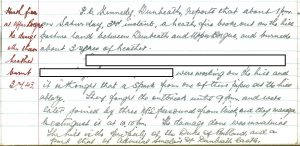 Heath fire
at Upr. Borgue
No damage
other than
heather
burnt
2/4/43
P.C. Dunnet, Dunbeath, reports that about 1 pm
on Saturday, 2nd instant, a heath fire broke out on the hill
land between Dunbeath and Upper Borgue and burned
about 3 acres of heather.
were working on the hill and
it is thought that a spark from one of their pipes set the hill
ablaze. They fought the outbreak until 9 pm and were
later joined by three NFS personnel from Wick and they managed
to extinguish it at 11.15 pm. The damage done was immaterial
The hill is the property of the Duke of Portland, and a
part that of Admiral Sinclair of Dunbeath Castle.